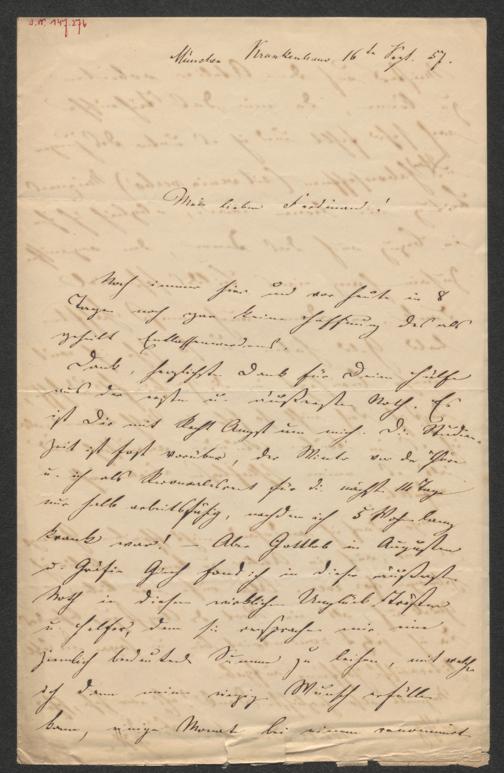 I.N. 147.276
München Krankenhaus 16te Sept. 57.
Mein lieber Ferdinand!
Noch immer hier und vor heute in 8
Tagen noch gar keine Hoffnung des als
geheilt Entlassenwerdens.
Dank, herzlichst Dank für Deine Hülfe
aus der ersten u. äußersten Noth. Es
ist Dir mit Recht Angst um mich. Die
Zeit ist fast vorüber, der Winter vor der Thüre
u. ich als Reconvalescent für die nächste 14 Tage
nur halb arbeitsfähig, nachdem ich 5 Wochen lang
krank war! – Aber Gottlob in Augusten
u. Gräfin fand ich in dieser äußersten
Noth in diesem wirklichen Unglück Tröster
u. Helfer, denn sie versprachen mir eine
ziemlich bedeutende Summe zu leihen, mit welcher
ich dann meinen Wunsch erfüllen
kann, einige Monate bei einem